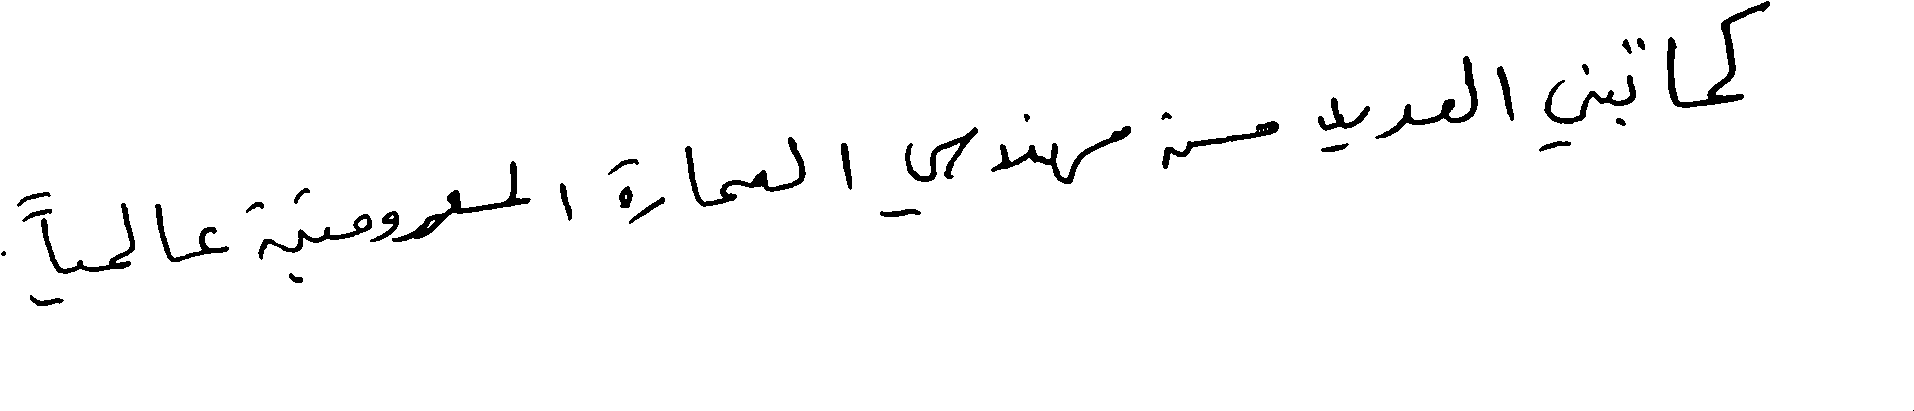 كما تبني العديد من مهندسي العمارة المعروفين عالمياً